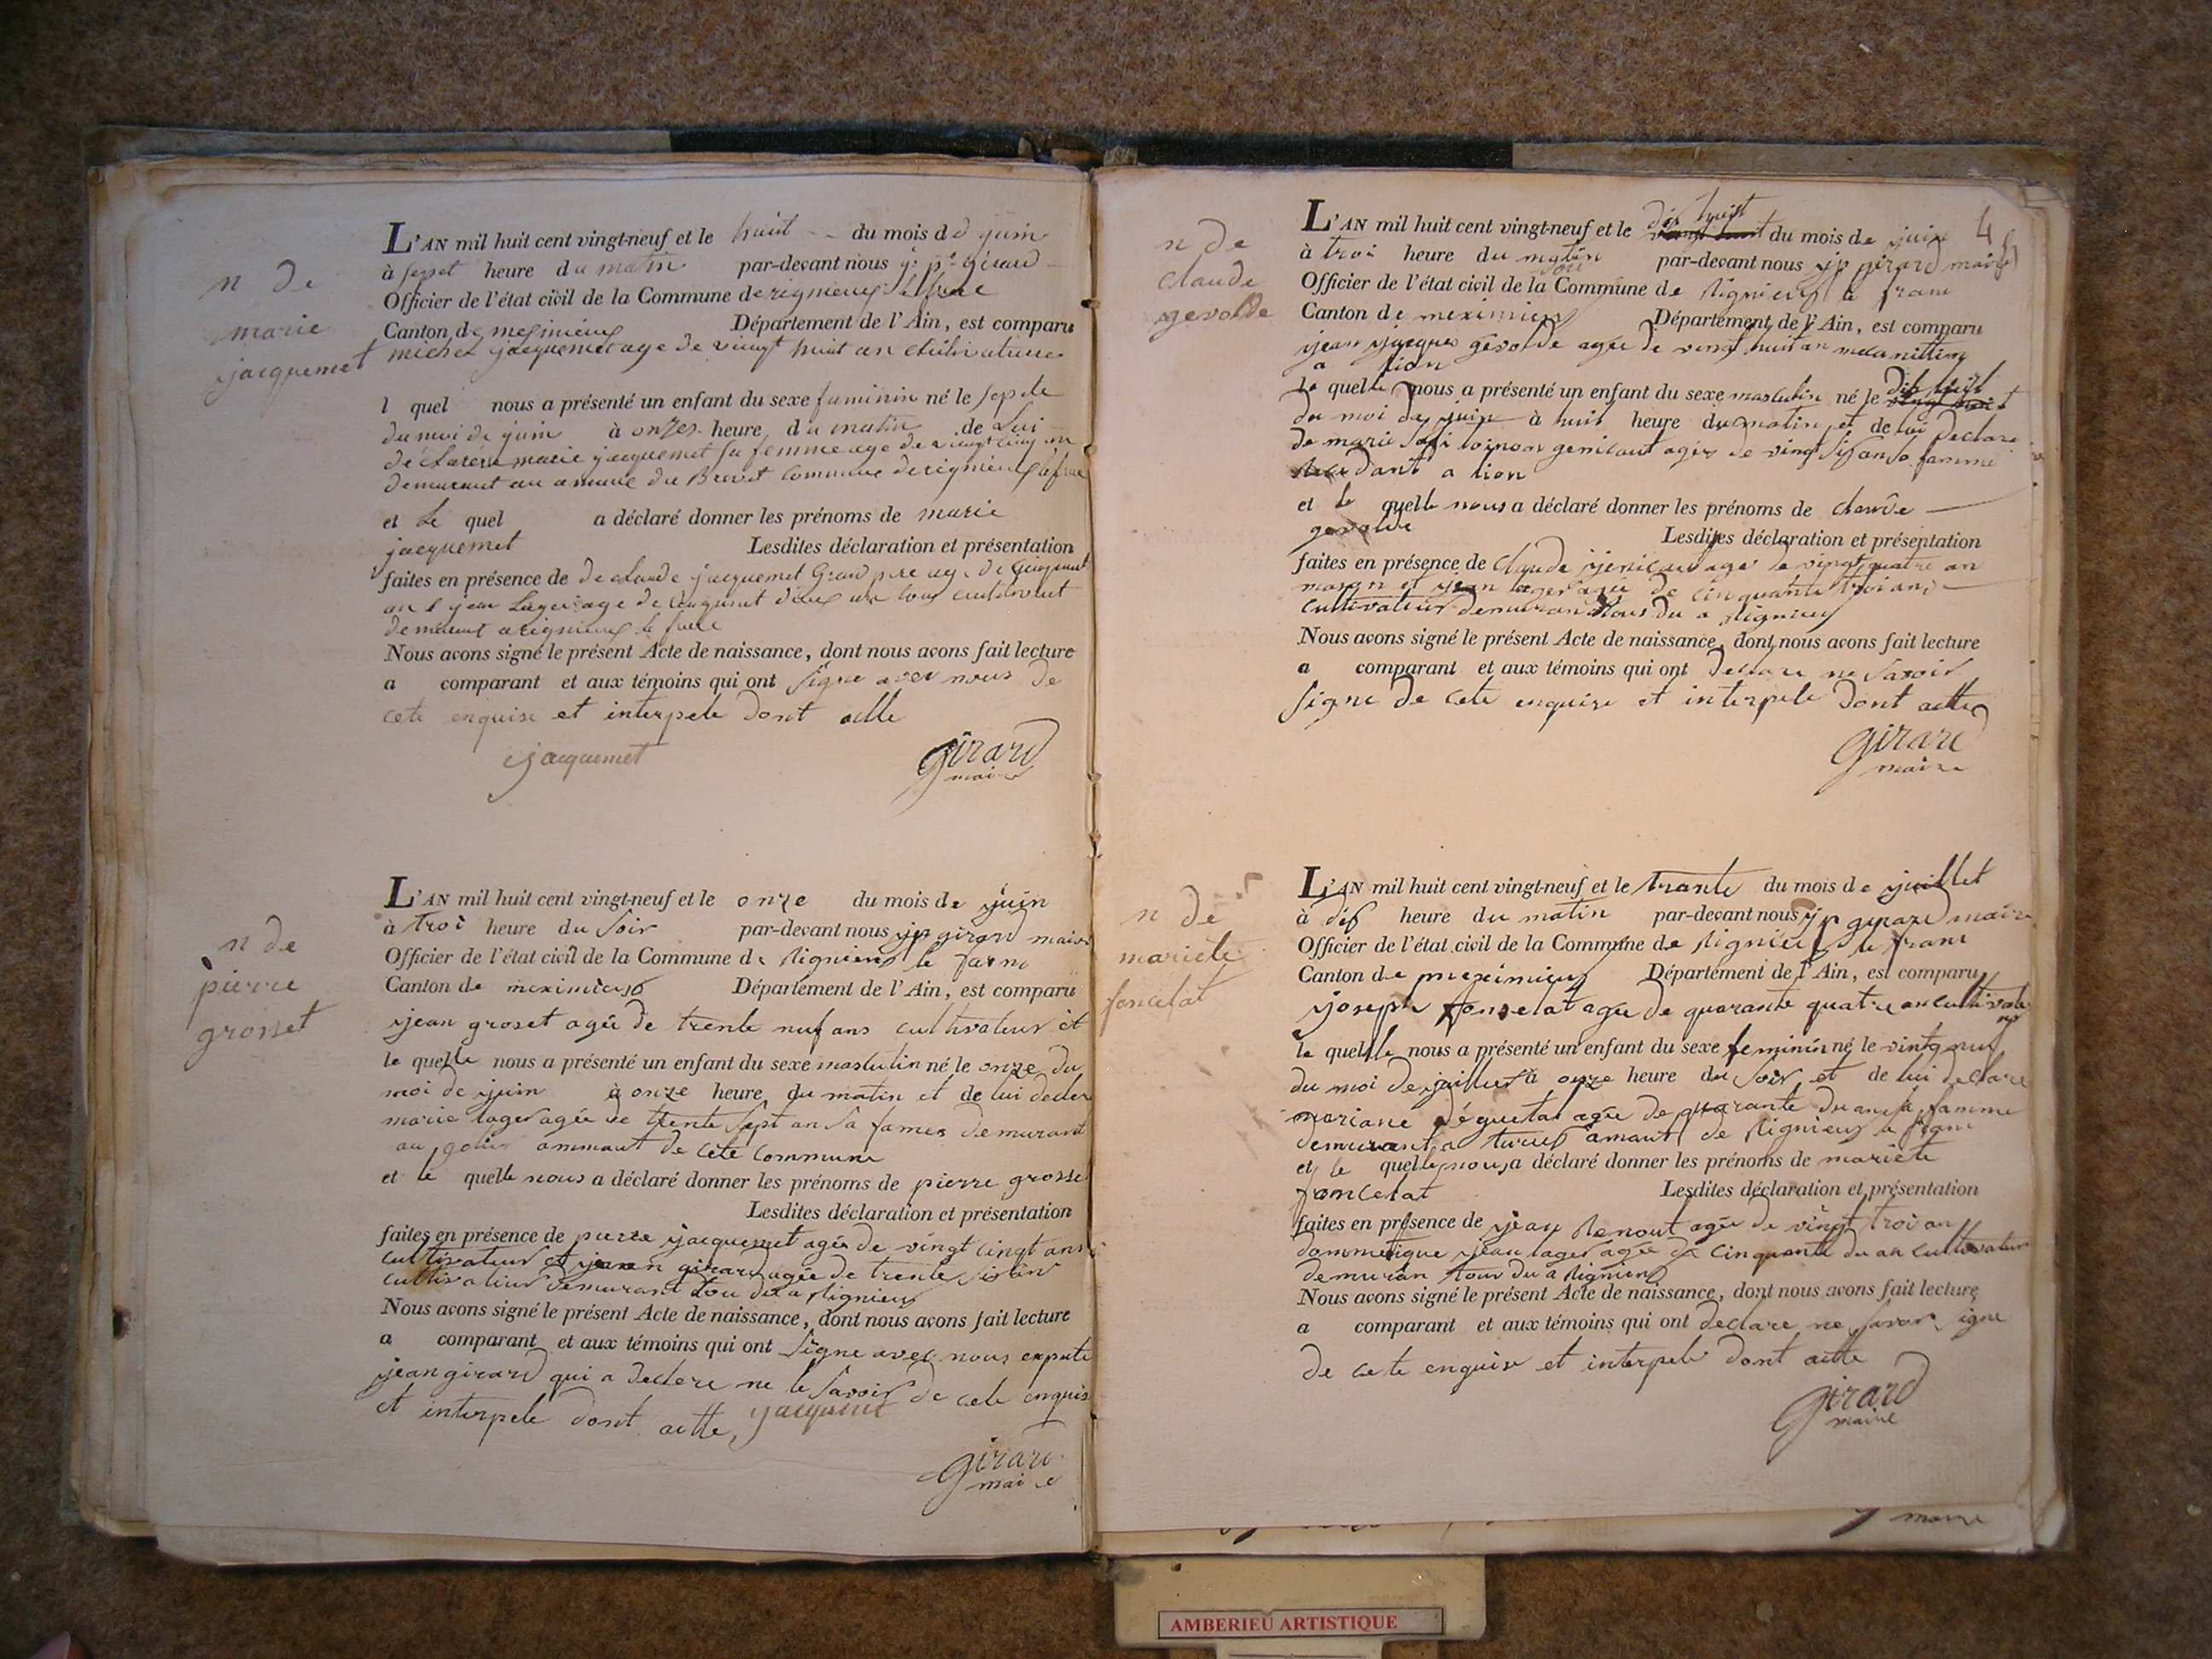 n de
marie
jacquemet
L'AN mil huit cent vingt-neuf et le huit du mois de juin
à sepet heure du matin par-devant nous j. p. girard
Officier de l'état civil de la Commune de rignieux le franc
Canton de mesimieux Département de l'Ain, est comparu
michel jacquemet age de vingt huit an cultivateure
l quel nous a présenté un enfant du sexe faminin né le septe
du moi de juin à onzes heure du matin de Lui
déclarére marie jacquemet sa femme age de vingt cinq an
demeurant au amaux du Brevet Commune de rignieux le franc
et Le quel a déclaré donner les prénoms de marie
jacquemet Lesdites déclaration et présentation
faites en présence de de claude jacquemet Grand pere age de
an e jean Lager age de deux an tous
demeurant a rignieux le franc
Nous avons signé le présent Acte de naissance, dont nous avons fait lecture
a comparant et aux témoins qui ont signe avec nous de
cete enquise et interpele Dont actte
jacquemet girard
maire
n de
pierre
grosset
L'AN mil huit cent vingt-neuf et le onze du mois de juin
à troi heure du soir par-devant nous jp girard maire
Officier de l'état civil de la Commune de Rignieux le
Canton de meximieux Département de l'Ain, est comparu
jean groset agée de trente nuf ans cultivateur et
le quelle nous a présenté un enfant du sexe masculin né le onze du
moi de juin à onze heure du matin et de lui decler
marie lager agée de trente sept an sa famer demurant
au ammaut de cete commune
et le quelle nous a déclaré donner les prénoms de pierre grosse
Lesdites déclaration et présentation
faites en présence de pierre jacquemet agée de vingt cingt ans
cultivateur et jean girard agée de trente sis an
cultivatieur demurant tou deu a Rignieux
Nous avons signé le présent Acte de naissance, dont nous avons fait lecture
a comparant et aux témoins qui ont signe avec nous expete
jean girard qui a declere ne le savoir de cete enquis
et interpele dont actte, jacquemet
girard
maire
n de
claude
gevolde
L'AN mil huit cent vingt-neuf et le dis huist du mois de juin
à troi heure du soir par-devant nous jp girard maire
Officier de l'état civil de la Commune de Rignieux le franc
Canton de meximieux Département de l'Ain, est comparu
jean jacques gevolde agée de vingt huit an
a lion
le quelle nous a présenté un enfant du sexe masculin né le dis huit
du moi de juin à huit heure du matin et de lui declare
de marie genicaut agée de vingt sis an sa famme
a lion
et le quelle nous a déclaré donner les prénoms de claude
gevolde Lesdites déclaration et présentation
faites en présence de claude jenicau age de vingt quatre an
mason et jean lager agée de cinquante troi ans
cultivateur demuran tous du a Rignieux
Nous avons signé le présent Acte de naissance, dont nous avons fait lecture
a comparant et aux témoins qui ont declare ne savoir
signe de cete enquise et interpele Dont actte
girard
maire
n de
mariete
foncelat
L'AN mil huit cent vingt-neuf et le trante du mois de juillet
à dis heure du matin par-devant nous jp girard maire
Officier de l'état civil de la Commune de Rignieux le franc
Canton de meximieux Département de l'Ain, est comparu
joseph fonselat agée de quarante quatre an cultivateur
le quelle nous a présenté un enfant du sexe feminin né le vintg nuf
du moi de juillet à onze heure du soir et de lui declare
mariane agée de quarante du an sa famme
demurant a amaut de Rignieux le franc
et le quelle nous a déclaré donner les prénoms de mariete
foncelat Lesdites déclaration et présentation
faites en présence de jean Renout agée de vingt troi an
dommetique jean lager agée de cinquante du an cultivateur
demuran tour du a Rignieux
Nous avons signé le présent Acte de naissance, dont nous avons fait lecture
a comparant et aux témoins qui ont declare ne savor signe
de cete enquise et interpele dont actte
girard
maire
maire
AMBERIEU ARTISTIQUE